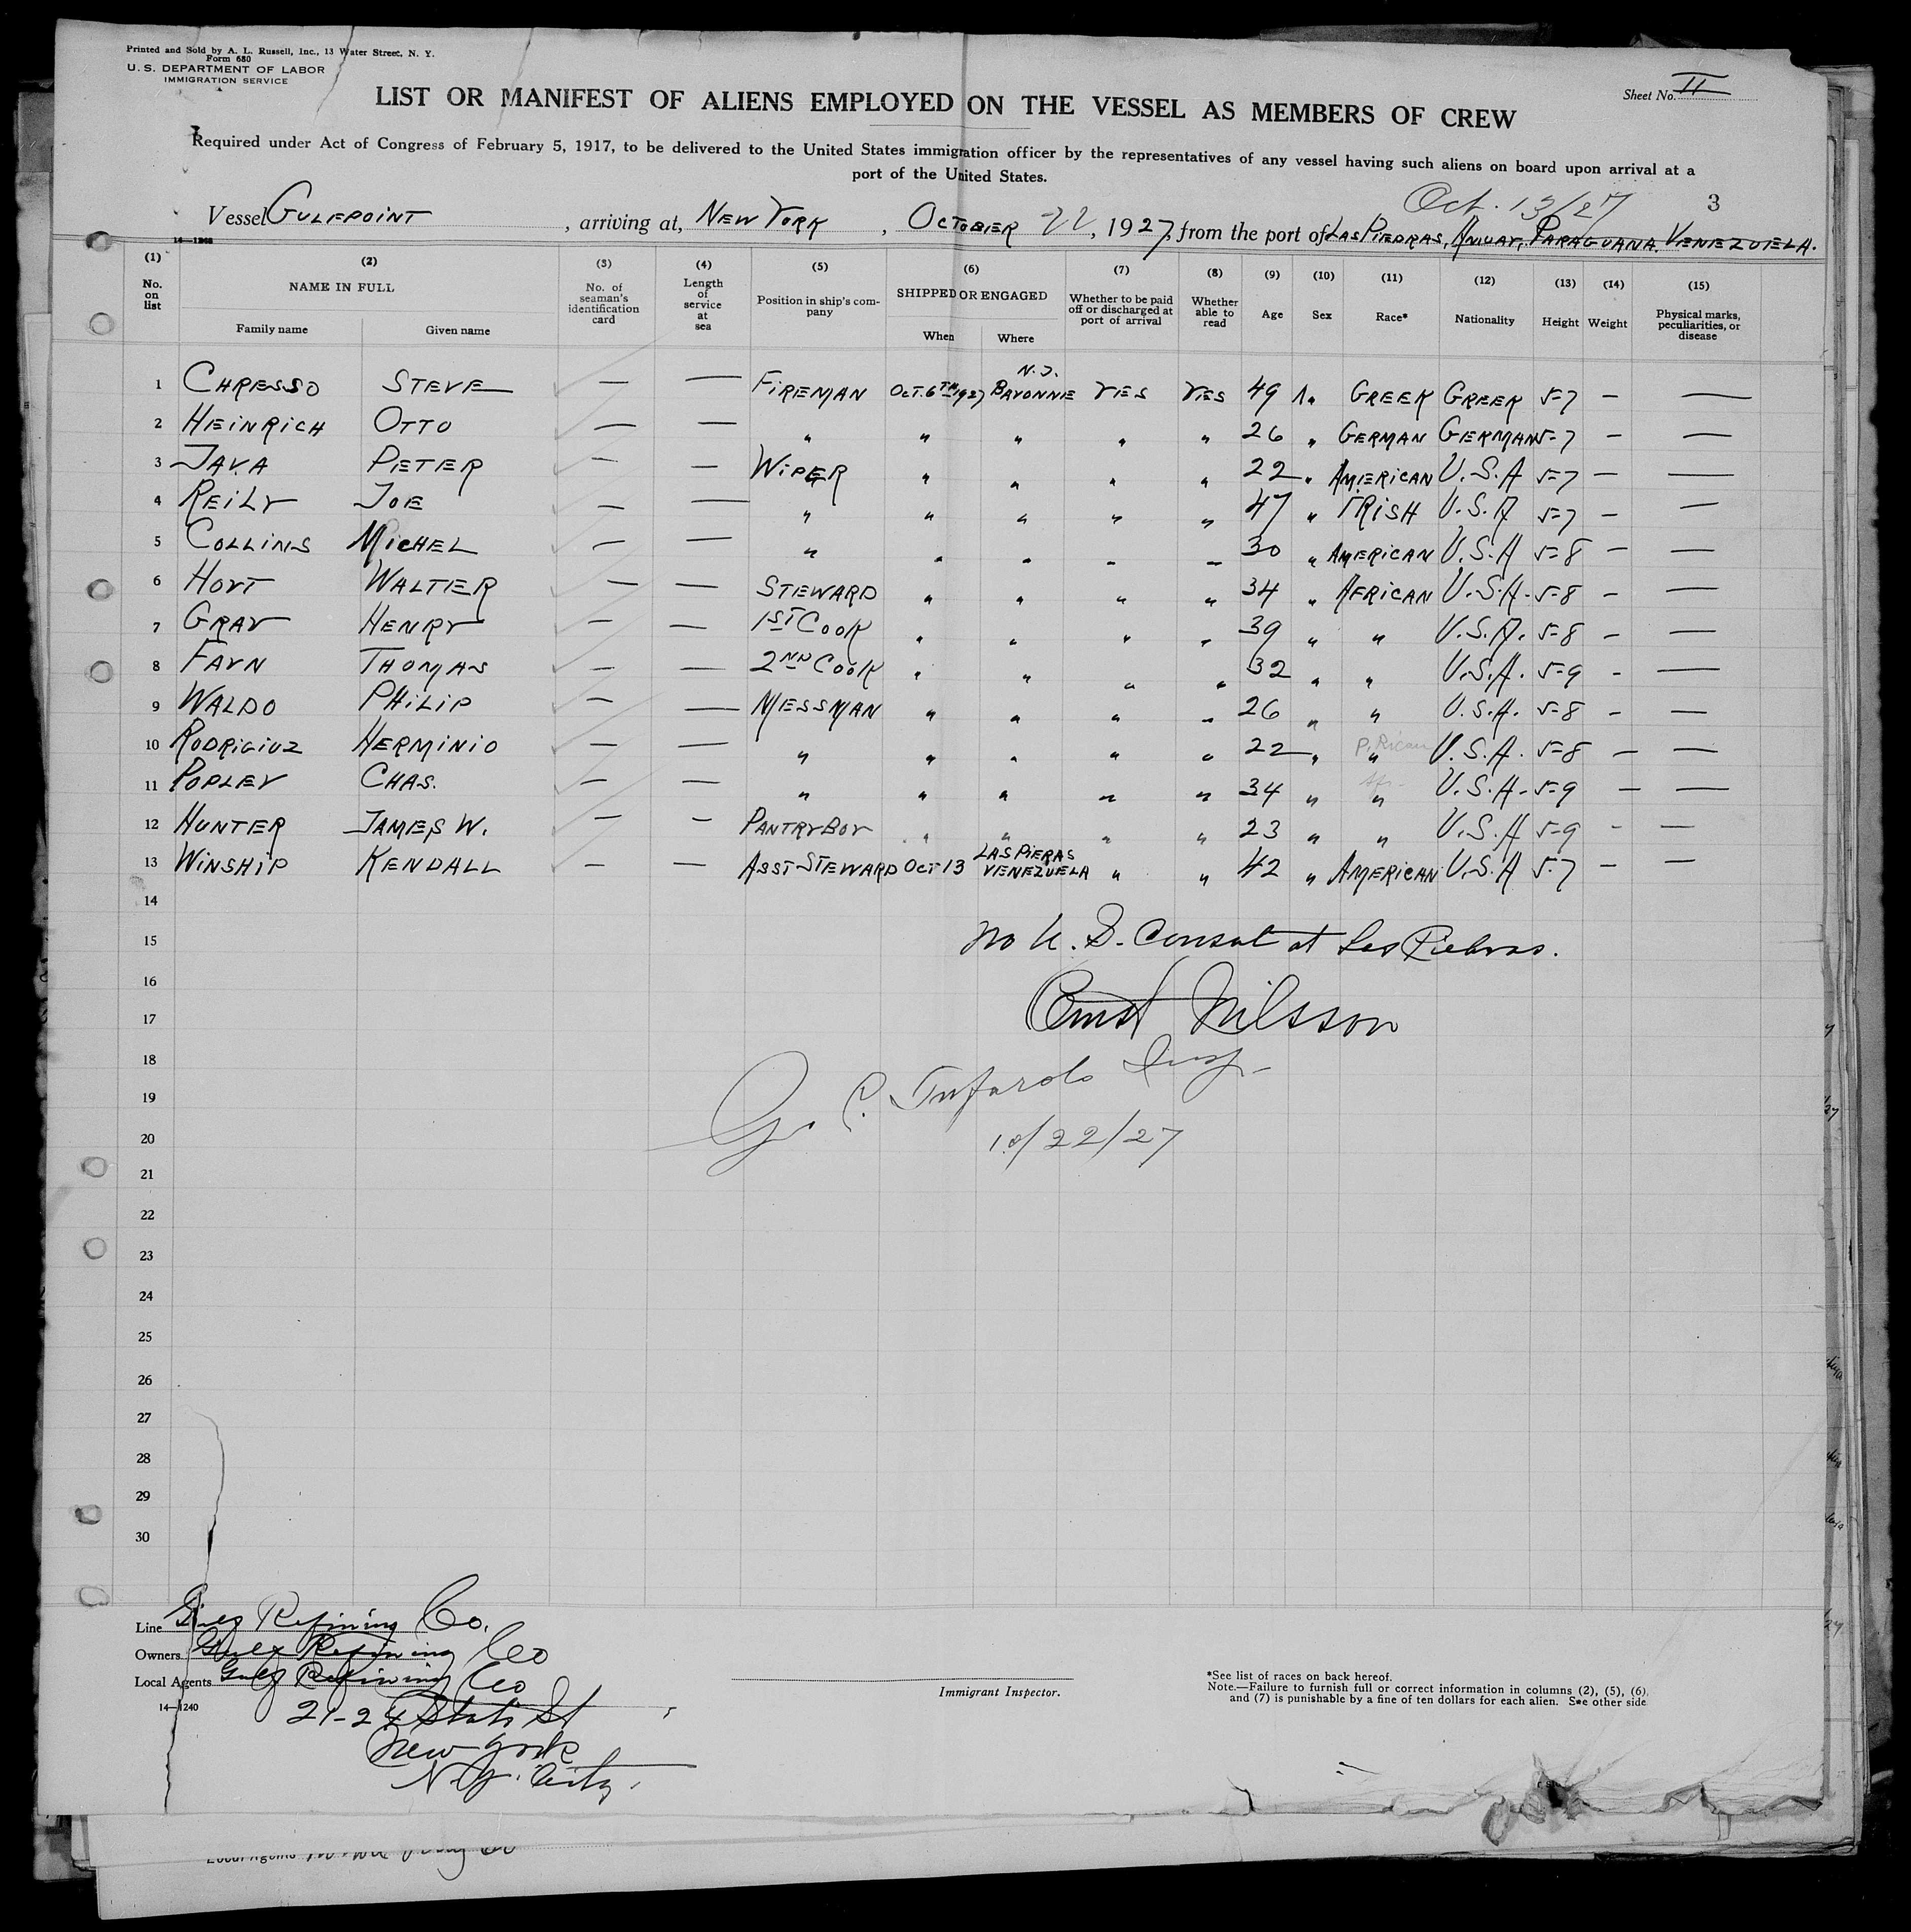 Printed and Sold by A. L. Russell, Inc., 13 Water Street, N. Y.
Form 680
U. S. DEPARTMENT OF LABOR
IMMIGRATION SERVICE
Sheet No. II
LIST OR MANIFEST OF ALIENS EMPLOYED ON THE VESSEL AS MEMBERS OF CREW
Required under Act of Congress of February 5, 1917, to be delivered to the United States immigration officer by the representatives of any vessel having such aliens on board upon arrival at a
port of the United States.
Oct. 13/27 3
Vessel GULFPOINT, arriving at, NEW YORK, OCTOBER 22, 1927, from the port of LAS PIEDRAS, AMUAY, PARAGUANA. VENEZUELA.
14—1248
(1) (2) (3) (4) (5) (6) (7) (8) (9) (10) (11) (12) (13) (14) (15)
No. on list NAME IN FULL Family name Given name No. of seaman's identification card Length of service at sea Position in ship's company SHIPPED OR ENGAGED When Where Whether to be paid off or discharged at port of arrival Whether able to read Age Sex Race* Nationality Height Weight Physical marks, peculiarities, or disease
N.J.
1 CHRESSO STEVE — — FIREMAN OCT. 6TH 1927 BAYONNE YES YES 49 M. GREEK GREEK 5-7 — —
2 HEINRICH OTTO — — " " " " " 26 " GERMAN GERMAN 5-7 — —
3 JAVA PETER — — WIPER " " " " 22 " AMERICAN U.S.A 5-7 — —
4 REILY JOE — — " " " " " 47 " IRISH U.S.A 5-7 — —
5 COLLINS MICHEL — — " " " " " 30 " AMERICAN U.S.A 5-8 — —
6 HOYT WALTER — — STEWARD " " " " 34 " AFRICAN U.S.A. 5-8 — —
7 GRAY HENRY — — 1ST COOK " " " " 39 " " U.S.A. 5-8 — —
8 FAYN THOMAS — — 2ND COOK " " " " 32 " " U.S.A. 5-9 - —
9 WALDO PHILIP — — MESSMAN " " " " 26 " " U.S.A. 5-8 — —
10 RODRIGIUZ HERMINIO — — " " " " " 22 " P. Rican " U.S.A. 5-8 — —
11 POPLEY CHAS. — — " " " " " 34 " Afr. " U.S.A. 5-9 — —
12 HUNTER JAMES W. — — PANTRYBOY " " " " 23 " " U.S.A 5-9 - —
13 WINSHIP KENDALL — — ASST STEWARD OCT 13 LAS PIERAS VENEZUELA " " 42 " AMERICAN U.S.A 5.7 — —
14
15 No U. S. Consul at Las Piedras.
16
17 Ernst Nilsson
18
19 Insp.
20 10/22/27
21
22
23
24
25
26
27
28
29
30
Line Gulf Refining Co.
Owners Gulf Refining Co
Local Agents Gulf Refining Co
14—1240
21-24 State St
New York
N.Y. City.
Immigrant Inspector.
*See list of races on back hereof.
Note.—Failure to furnish full or correct information in columns (2), (5), (6),
and (7) is punishable by a fine of ten dollars for each alien. See other side
Local Agents